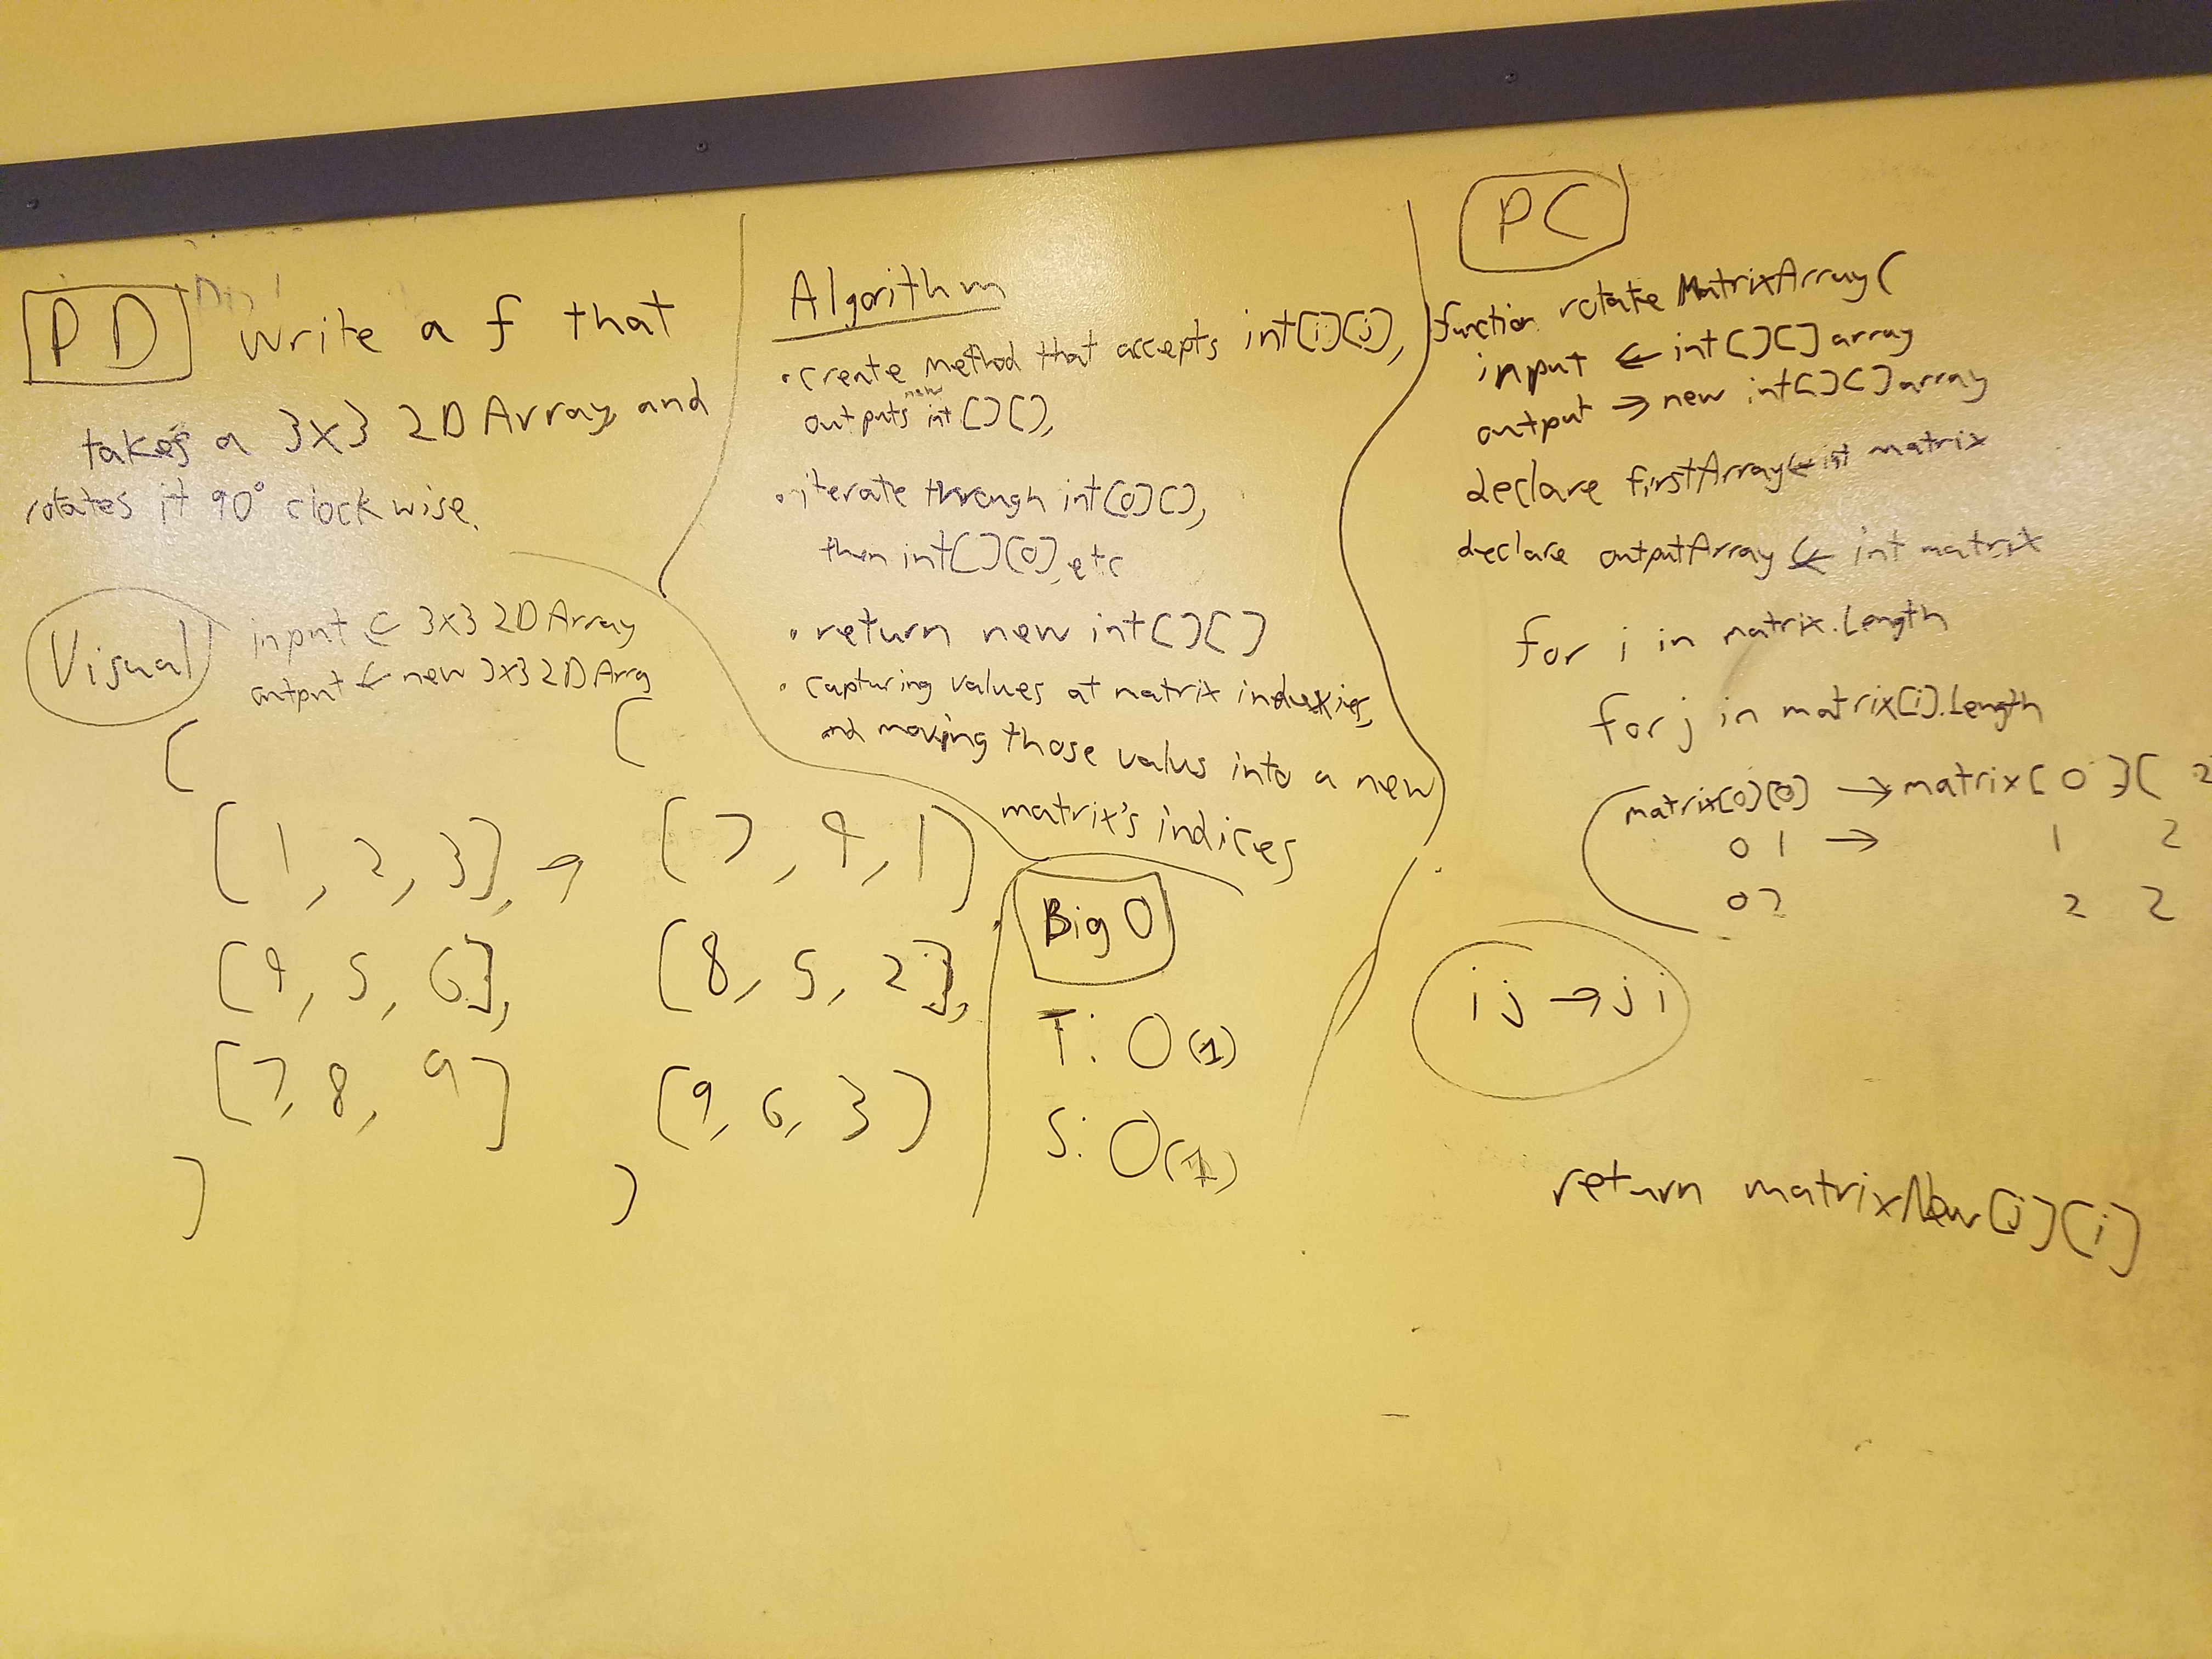 PD write a f that
takes a 3x3 2D Array, and
rotates it 90° clockwise.
Visual
input ← 3x3 2D Array
output ← new 3x3 2D Arra
[
[1, 2, 3], →
[4, 5, 6],
[7, 8, 9]
]
[
[7, 4, 1]
[8, 5, 2],
[9, 6, 3]
]
Algorithm
• create method that accepts int[i][j],
outputs new int[][],
• iterate through int[0][],
then int[][0], etc
• return new int[][]
• capturing values at matrix
and moving those valus into a new
matrix's indices
Big O
T: O(1)
S: O(1)
PC
function rotate MatrixArray(
input ← int[][] array
output → new int[][] array
declare firstArray ← int matrix
declare outputArray ← int matrix
for i in matrix.Length
for j in matrix[i].Length
matrix[0][0] → matrix[0][2
0 1 → 1 2
0 2 2 2
i j → j i
return matrixNew[j][i]